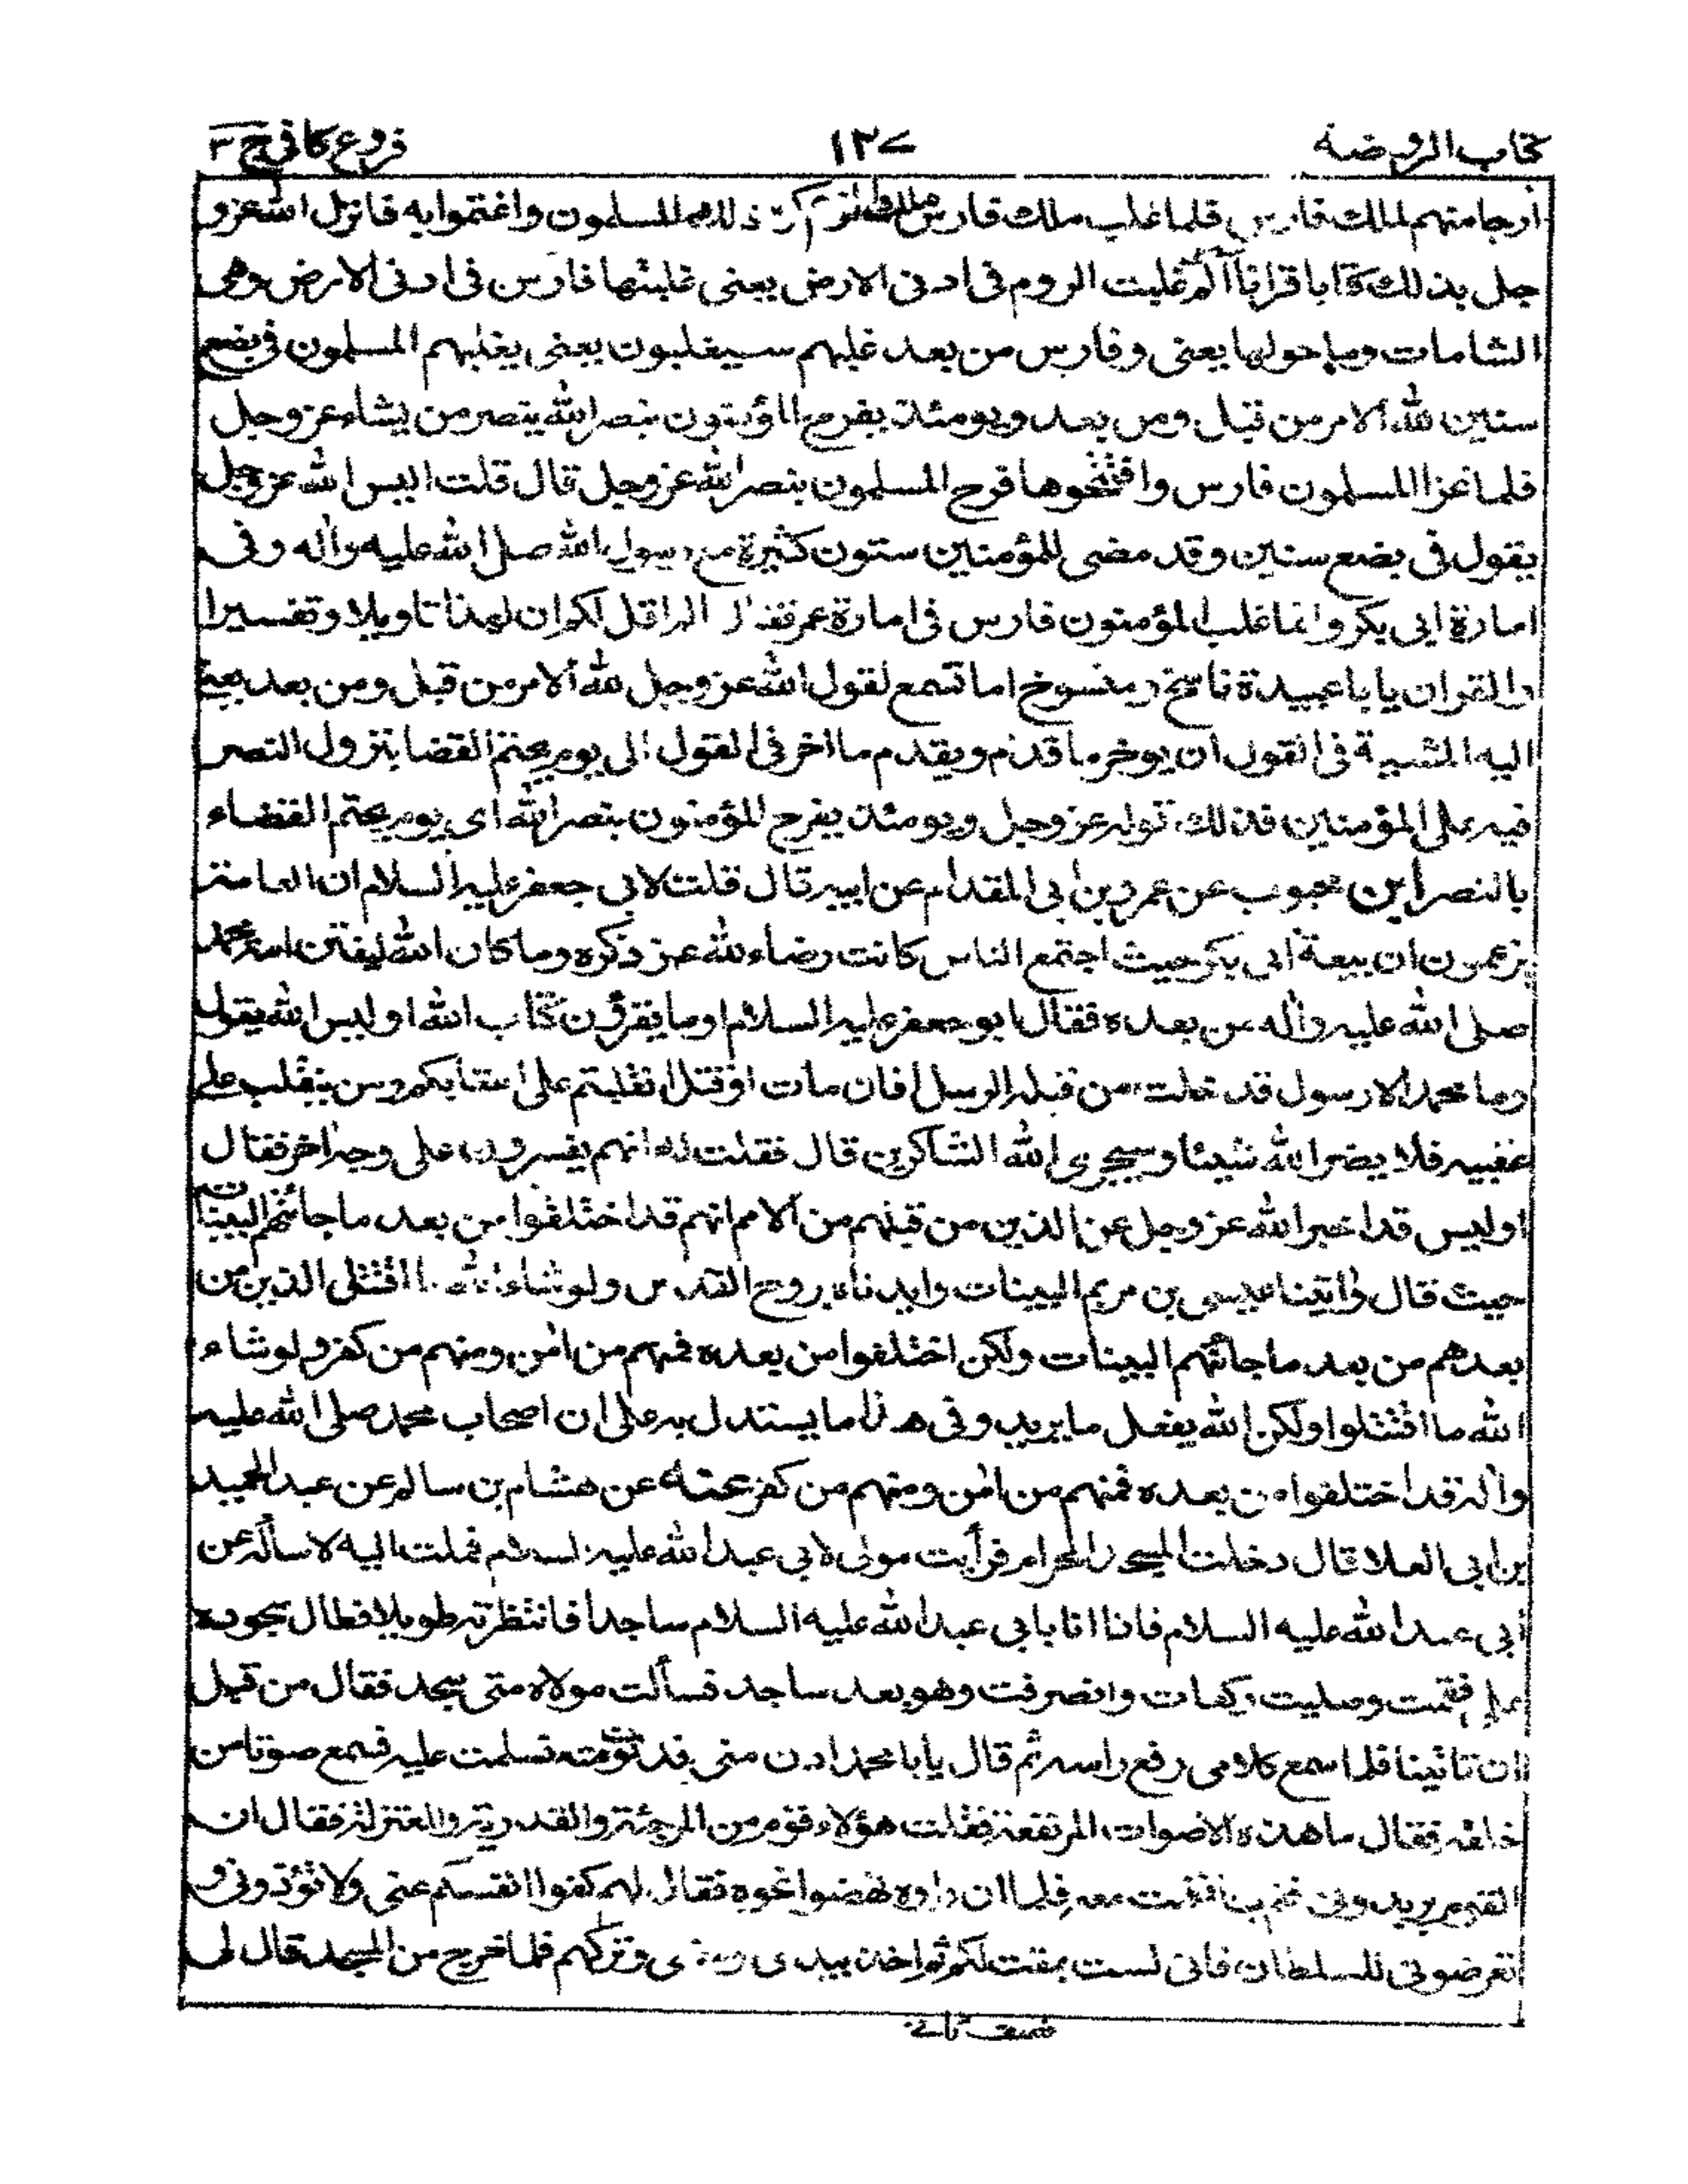 كتاب الروضة ١٣٧ فروع كافي ج ٣
أرجا منهم لملك فارس فلما غلب ملك فارس ملك الروم كره ذلك المسلمون واغتموا به فانزل الله عزو
جل بذلك كتابا قرانا آلم غلبت الروم في ادنى الارض يعني غلبتها فارس في ادنى الارض وهي
الشامات وما حولها يعني وفارس من بعد غلبهم سيغلبون يعني يغلبهم المسلمون في بضع
سنين لله الامر من قبل ومن بعد ويومئذ يفرح المؤمنون بنصر الله ينصر من يشاء عز وجل
فلما غزا المسلمون فارس وافتتحوها فرح المسلمون بنصر الله عز وجل قال قلت اليس الله عز وجل
يقول في بضع سنين وقد مضى للمؤمنين سنون كثيرة مع رسول الله صلى الله عليه وآله وفي
امارة ابي بكر وانما غلب المؤمنون فارس في امارة عمر فقال الم اقل لكم ان لهذا تاويلا وتفسيرا
والقران يا با عبيدة ناسخ ومنسوخ اما تسمع لقول الله عز وجل لله الامر من قبل ومن بعد يعني
اليه المشية في القول ان يوخر ما قدم ويقدم ما اخر في القول الى يوم يحتم القضا بنزول النصر
فيه على المؤمنين فذلك قوله عز وجل ويومئذ يفرح المؤمنون بنصر الله اي يوم يحتم القضاء
بالنصر ابن محبوب عن عمرو بن ابي المقدام عن ابيه قال قلت لابي جعفر عليه السلام ان العامة
يزعمون ان بيعة ابي بكر حيث اجتمع الناس كانت رضاء لله عز ذكره وما كان الله ليفتن امة محمد
صلى الله عليه وآله من بعده فقال ابو جعفر عليه السلام اوما يقرؤن كتاب الله اوليس الله يقول
وما محمد الا رسول قد خلت من قبله الرسل افان مات اوقتل انقلبتم على اعقابكم ومن ينقلب على
عقبيه فلا يضر الله شيئا وسيجزى الله الشاكرين قال فقلت له انهم يفسرون على وجه اخر فقال
اوليس قد اخبر الله عز وجل عن الذين من قبلهم من الامم انهم قد اختلفوا من بعد ما جائتهم البينات
حيث قال وآتينا عيسى بن مريم البينات وايدناه بروح القدس ولو شاء الله ما اقتتل الذين من
بعدهم من بعد ما جائتهم البينات ولكن اختلفوا من بعده فمنهم من آمن ومنهم من كفر ولو شاء
الله ما اقتتلوا ولكن الله يفعل ما يريد وفي هذا ما يستدل به على ان اصحاب محمد صلى الله عليه
وآله قد اختلفوا من بعده فمنهم من آمن ومنهم من كفر عنه عن هشام بن سالم عن عبد الحميد
بن ابي العلا قال دخلت المسجد الحرام فرأيت مولى لابي عبد الله عليه السلام فملت اليه لاسأله عن
أبي عبد الله عليه السلام فاذا انا بابي عبد الله عليه السلام ساجدا فانتظرته طويلا فطال سجوده
علي فقمت وصليت ركعات وانصرفت وهو بعد ساجد فسألت مولاه متى سجد فقال من قبل
ان تاتينا فلما سمع كلامي رفع راسه ثم قال يا با محمد ادن مني فدنوت منه فسلمت عليه فسمع صوتا من
خلفه فقال ما هذه الاصوات المرتفعة فقلت هؤلاء قوم من المرجئة والقدرية والمعتزلة فقال ان
القوم يريدوني فقم بنا فقمت معه فلما ان راوه نهضوا نحوه فقال لهم كفوا انفسكم عني ولا تؤذوني و
تعرضوني للسلطان فاني لست بمفت لكم ثم اخذ بيدي وتركهم فلما خرج من المسجد قال لي